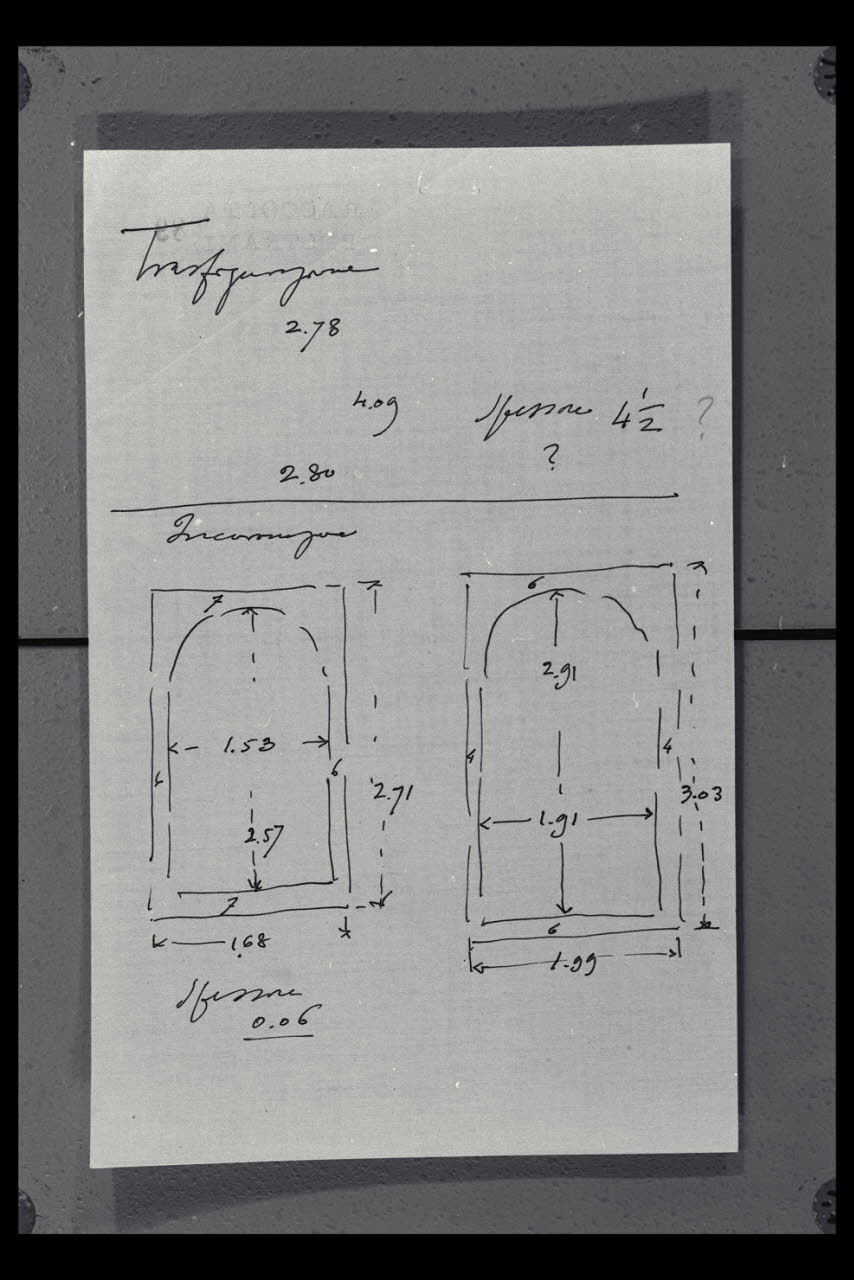 Trasfigurazione
2.78
4.09 Spessore 4 1/2 ?
?
2.80
Incoronazione
7
6
2.91
1.53
6
6
4
4
2.71
3.03
2.57
1.91
7
6
1.68
1.99
Spessore
0.06
RACCOLTA
BELTRAMI